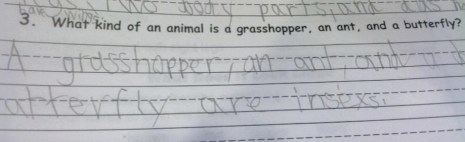 two body parts, and
3. What kind of an animal is a grasshopper, an ant, and a butterfly?
A grasshopper, an ant, and a b
atterfty are insexs.